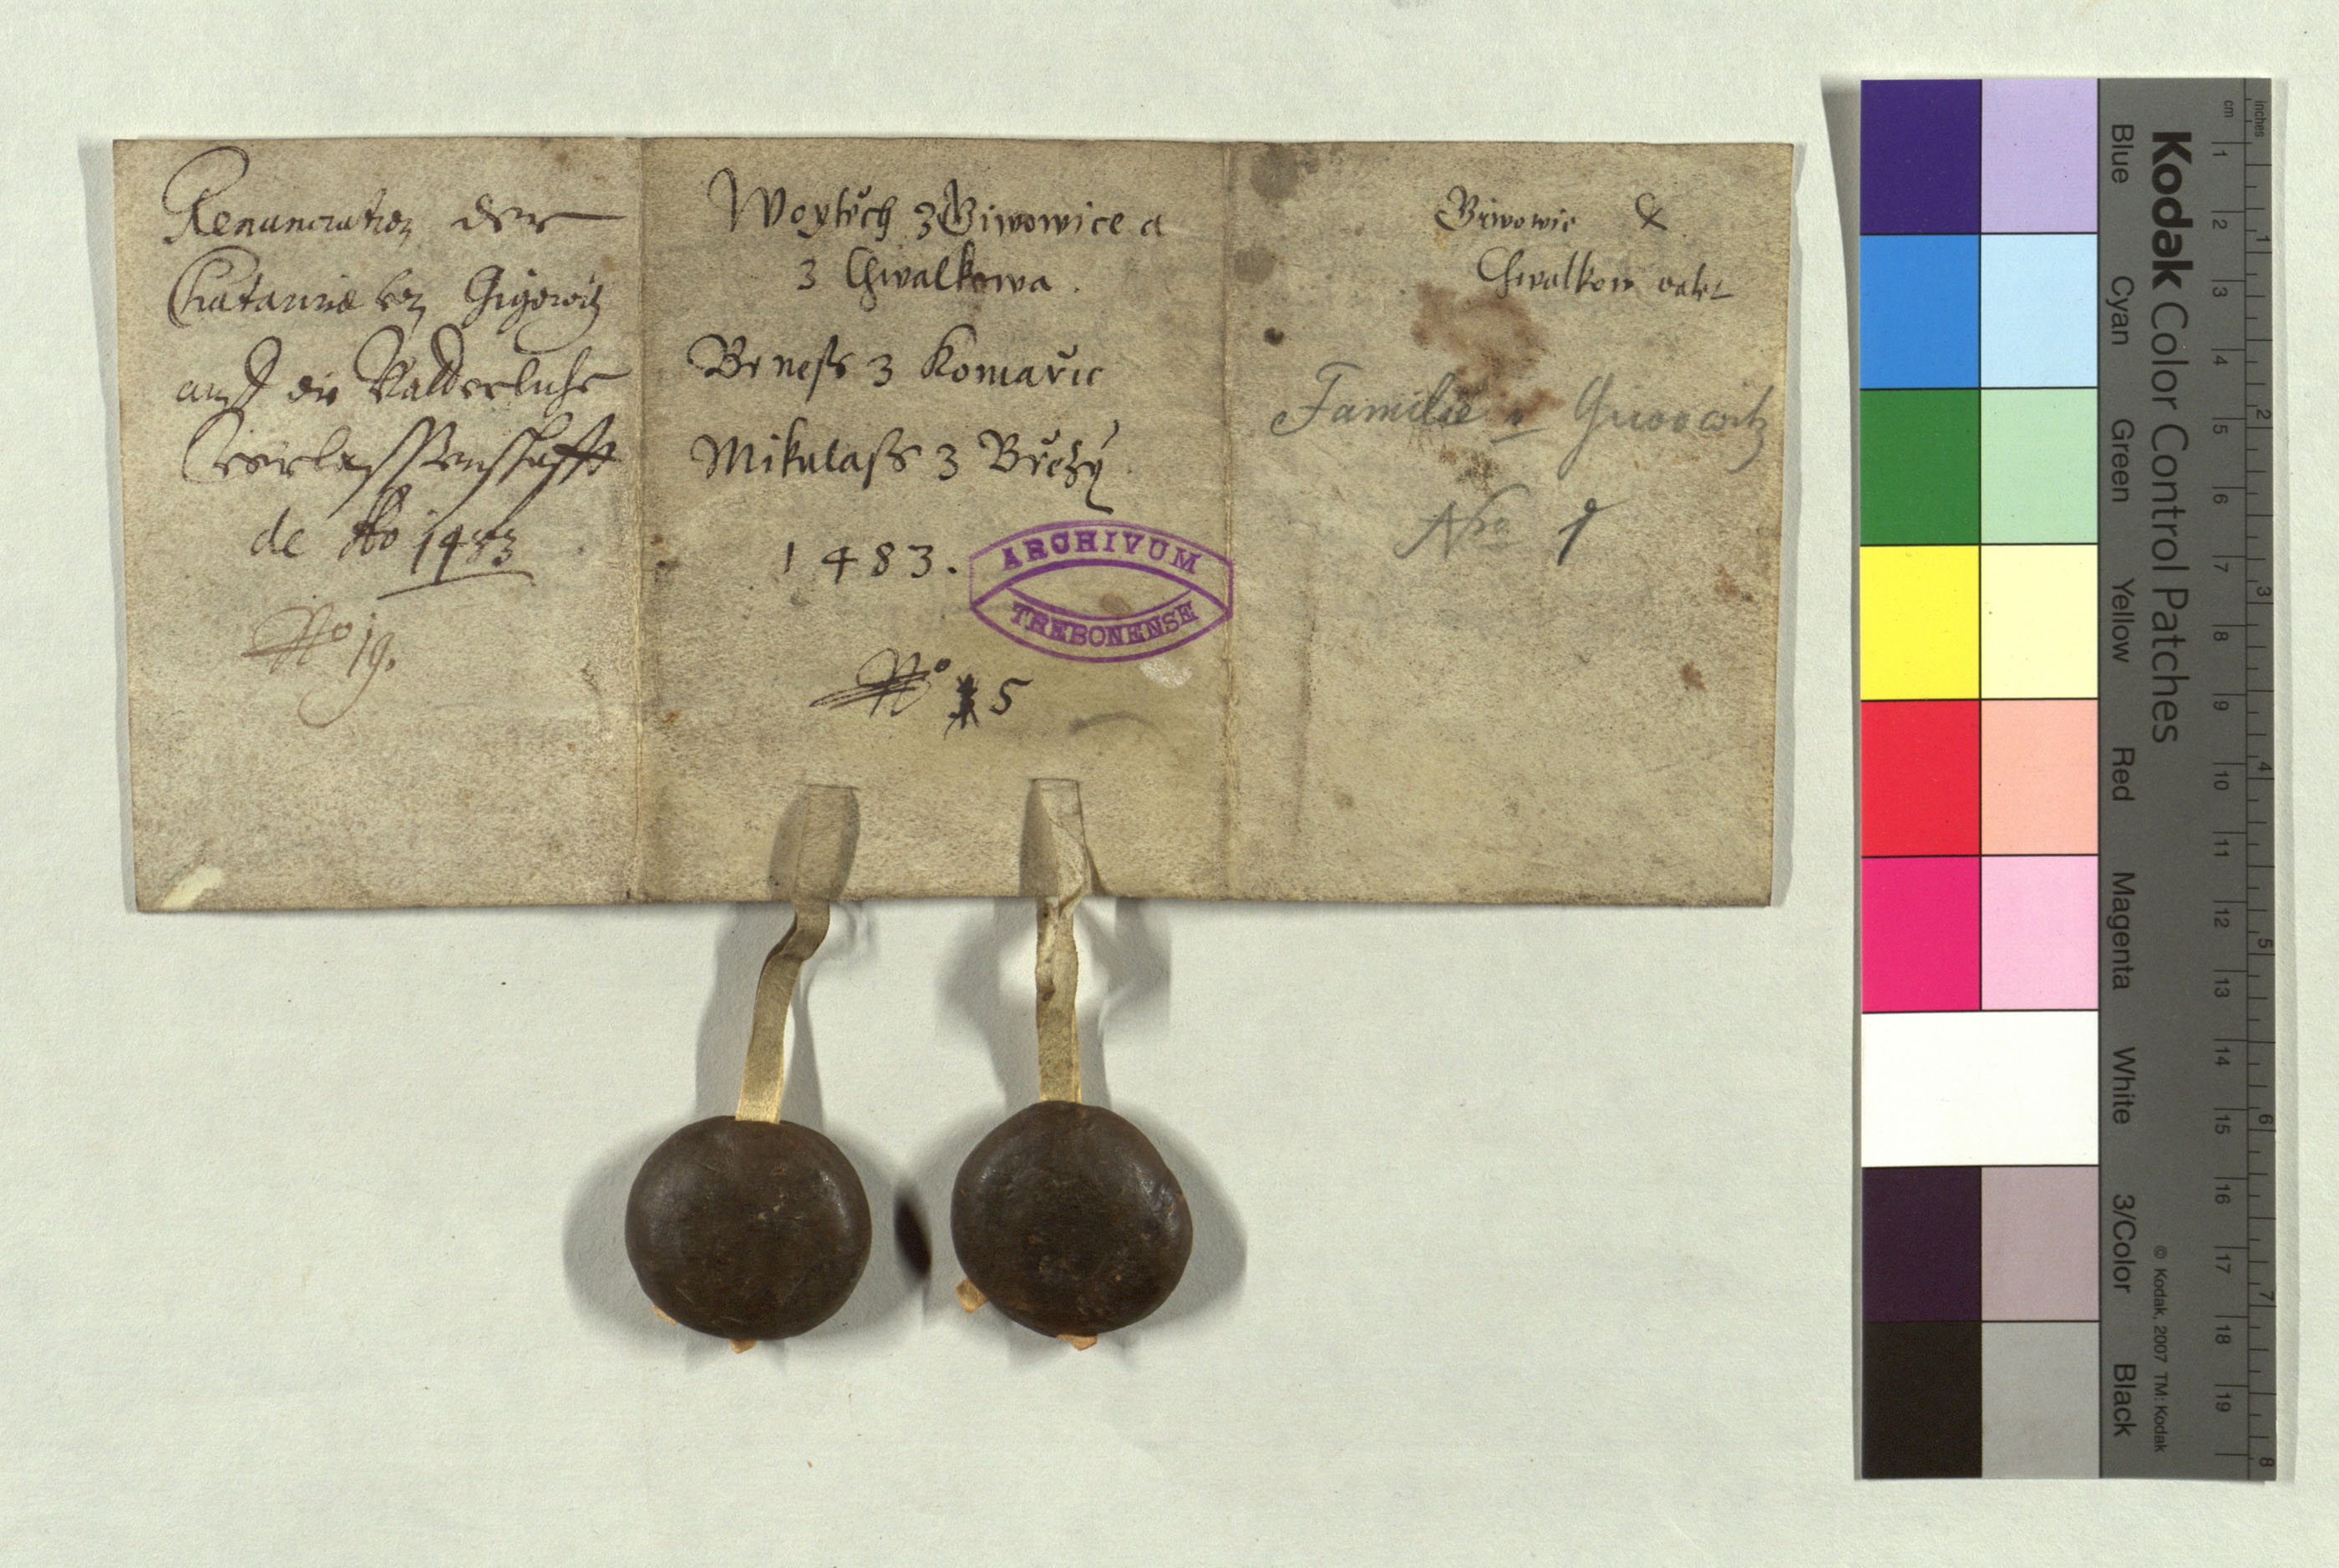 Renunciation der
Catarinæ von Gigowitz
auf die Vatterliche
Verlassenschafft
de Ao 1483
No 19.
Woytěch z Giwowice a
z Chwalkowa.
Beness z Komařic
Mikulass z Březý
1483.
ARCHIVUM
TREBONENSE
No 5
&
Chwalkow
Familie v
Nro 1
Kodak Color Control Patches
Blue Cyan Green Yellow Red Magenta White 3/Color Black
© Kodak, 2007 TM: Kodak
cm 1 2 3 4 5 6 7 8 9 10 11 12 13 14 15 16 17 18 19
inches 1 2 3 4 5 6 7 8